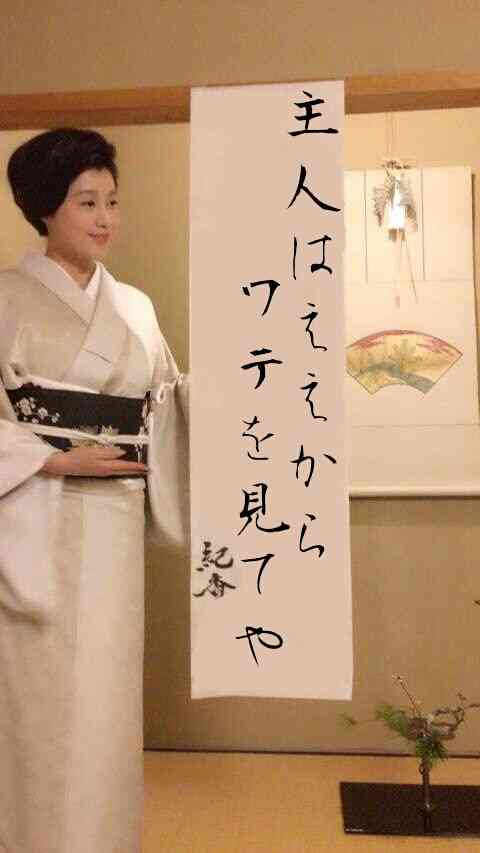 主人はええから
ワテを見てや
紀香